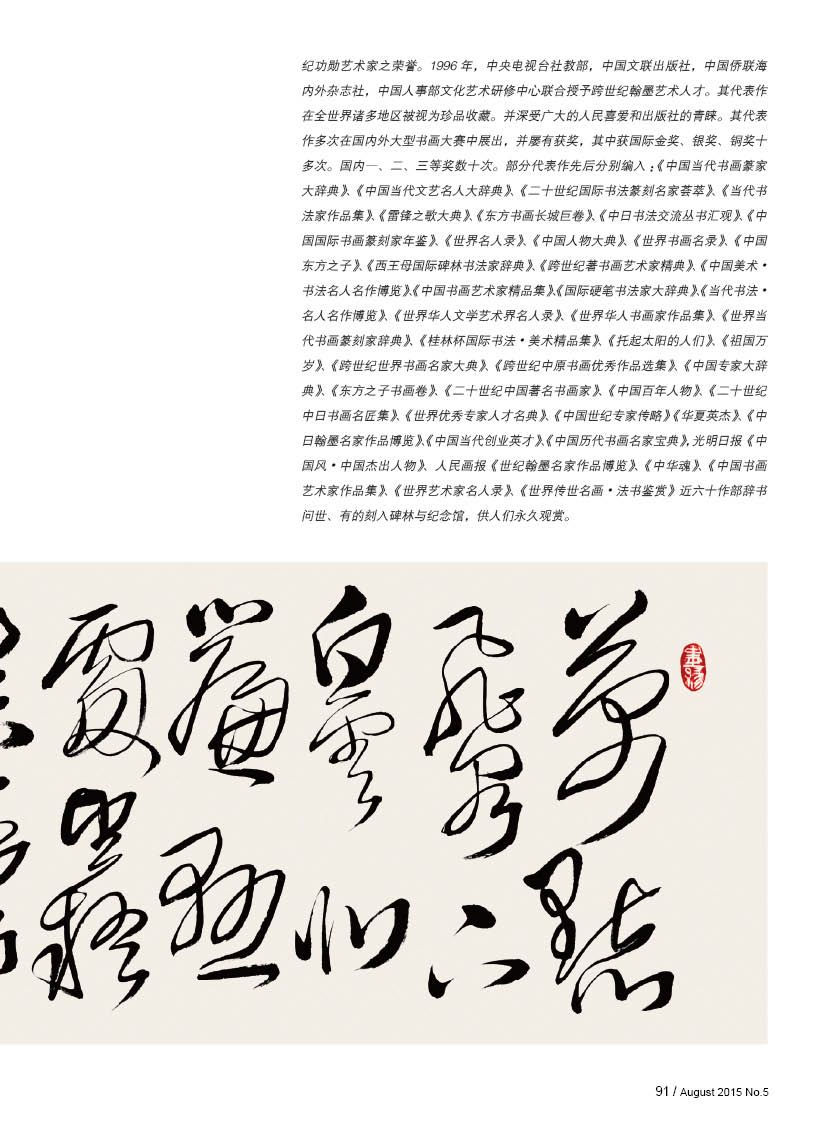 纪功勋艺术家之荣誉。1996 年，中央电视台社教部，中国文联出版社，中国侨联海
内外杂志社，中国人事部文化艺术研修中心联合授予跨世纪翰墨艺术人才。其代表作
在全世界诸多地区被视为珍品收藏。并深受广大的人民喜爱和出版社的青睐。其代表
作多次在国内外大型书画大赛中展出，并屡有获奖，其中获国际金奖、银奖、铜奖十
多次。国内一、二、三等奖数十次。部分代表作先后分别编入：《中国当代书画篆家
大辞典》、《中国当代文艺名人大辞典》、《二十世纪国际书法篆刻名家荟萃》、《当代书
法家作品集》、《雷锋之歌大典》、《东方书画长城巨卷》、《中日书法交流丛书汇观》、《中
国国际书画篆刻家年鉴》、《世界名人录》、《中国人物大典》、《世界书画名录》、《中国
东方之子》、《西王母国际碑林书法家辞典》、《跨世纪著书画艺术家精典》、《中国美术·
书法名人名作博览》、《中国书画艺术家精品集》、《国际硬笔书法家大辞典》、《当代书法·
名人名作博览》、《世界华人文学艺术界名人录》、《世界华人书画家作品集》、《世界当
代书画篆刻家辞典》、《桂林杯国际书法·美术精品集》、《托起太阳的人们》、《祖国万
岁》、《跨世纪世界书画名家大典》、《跨世纪中原书画优秀作品选集》、《中国专家大辞
典》、《东方之子书画卷》、《二十世纪中国著名书画家》、《中国百年人物》、《二十世纪
中日书画名匠集》、《世界优秀专家人才名典》、《中国世纪专家传略》《华夏英杰》、《中
日翰墨名家作品博览》、《中国当代创业英才》、《中国历代书画名家宝典》，光明日报《中
国风·中国杰出人物》、人民画报《世纪翰墨名家作品博览》、《中华魂》、《中国书画
艺术家作品集》、《世界艺术家名人录》、《世界传世名画·法书鉴赏》近六十作部辞书
问世、有的刻入碑林与纪念馆，供人们永久观赏。
萬點
飛泉下
白雲似
簾懸
處望疑
91 / August 2015 No.5